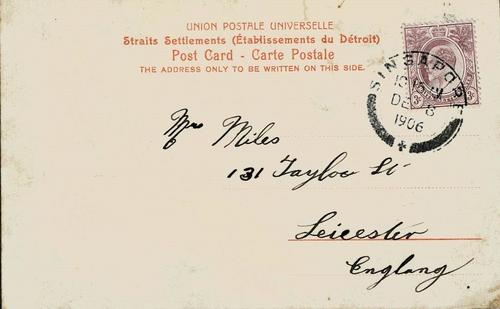 UNION POSTALE UNIVERSELLE
Straits Settlements (Établissements du Détroit)
Post Card - Carte Postale
THE ADDRESS ONLY TO BE WRITTEN ON THIS SIDE.
SINGAPORE
DE 8
1906
Mrs Miles
131 Taylor St
Leicester
England